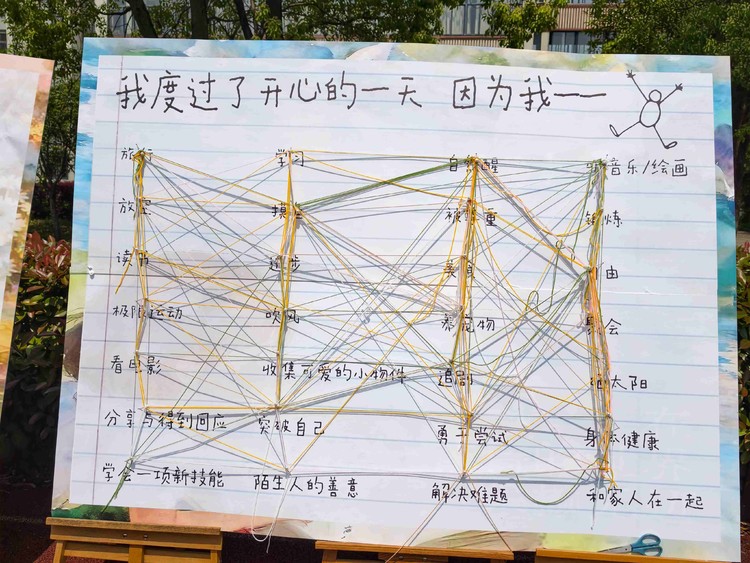 我度过了开心的一天 因为我——
旅行 学习 自然醒 听音乐/绘画
放空 摸鱼 被尊重 锻炼
读书 散步 美食 自由
极限运动 吹风 养宠物 聚会
看电影 收集可爱的小物件 追剧 晒太阳
分享与得到回应 突破自己 勇于尝试 身体健康
学会一项新技能 陌生人的善意 解决难题 和家人在一起